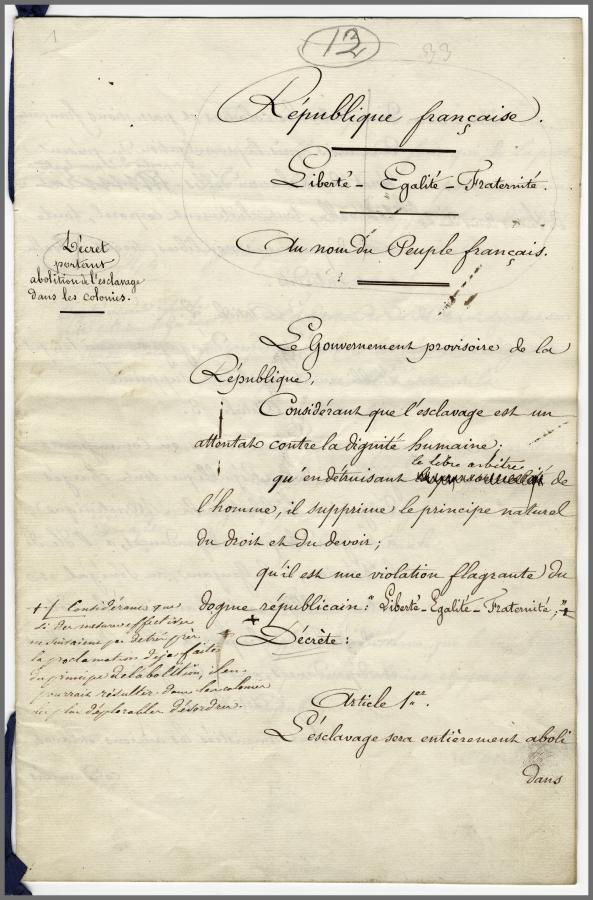 1
12
33
République française.
Liberté - Egalité - Fraternité.
Au nom du Peuple français.
Décret
portant
abolition de l'esclavage
dans les colonies.
Le Gouvernement provisoire de la
République,
Considérant que l'esclavage est un
attentat contre la dignité humaine;
qu'en détruisant le libre arbitre de
l'homme, il supprime le principe naturel
du droit et du devoir;
qu'il est une violation flagrante du
dogme républicain: "Liberté - Egalité - Fraternité;" +
+ Décrète:
+/ Considérant que
si des mesures effectives
ne suivaient pas de très près
la proclamation déjà faite
du principe de l'abolition, il en
pourrait résulter dans les colonies
les plus déplorables désordres.
Article 1er.
L'esclavage sera entièrement aboli
dans